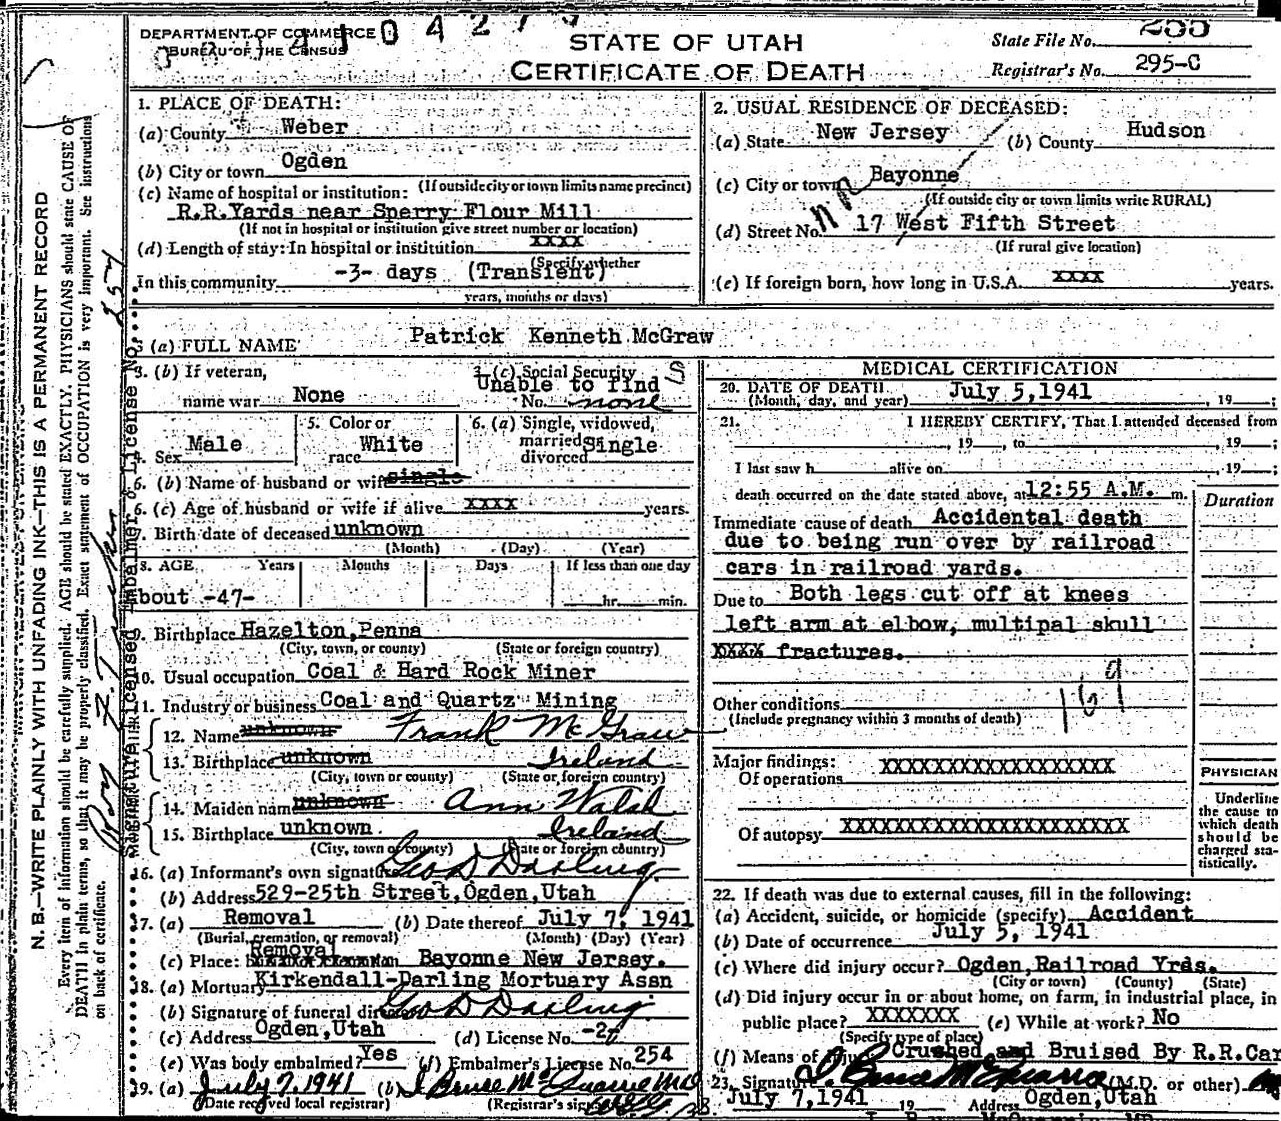 DEPARTMENT OF COMMERCE
BUREAU OF THE CENSUS
STATE OF UTAH
CERTIFICATE OF DEATH
State File No.
Registrar's No. 295-C
1. PLACE OF DEATH:
(a) County Weber
(b) City or town Ogden
(If outside city or town limits name precinct)
(c) Name of hospital or institution:
R.R.Yards near Sperry Flour Mill
(If not in hospital or institution give street number or location)
(d) Length of stay: In hospital or institution XXXX
(Specify whether
In this community -3- days (Transient)
years, months or days)
2. USUAL RESIDENCE OF DECEASED:
(a) State New Jersey (b) County Hudson
(c) City or town Bayonne
(If outside city or town limits write RURAL)
(d) Street No. 17 West Fifth Street
(If rural give location)
(e) If foreign born, how long in U.S.A. XXXX years.
3 (a) FULL NAME Patrick Kenneth McGraw
3. (b) If veteran,
name war None
3. (c) Social Security
Unable to find
No. none
4. Sex Male
5. Color or
race White
6. (a) Single, widowed,
married,
divorced Single
6. (b) Name of husband or wife single
6. (c) Age of husband or wife if alive XXXX years.
7. Birth date of deceased unknown
(Month) (Day) (Year)
8. AGE Years Months Days If less than one day
about -47- hr. min.
9. Birthplace Hazelton,Penna
(City, town, or county) (State or foreign country)
10. Usual occupation Coal & Hard Rock Miner
11. Industry or business Coal and Quartz Mining
12. Name unknown Frank McGraw
13. Birthplace unknown Ireland
(City, town or county) (State or foreign country)
14. Maiden name unknown Ann Walsh
15. Birthplace unknown Ireland
(City, town or county) (State or foreign country)
16. (a) Informant's own signature Geo D Darling
(b) Address 529-25th Street,Ogden,Utah
17. (a) Removal (b) Date thereof July 7, 1941
(Burial, cremation, or removal) (Month) (Day) (Year)
Removal
(c) Place: Bayonne New Jersey.
18. (a) Mortuary Kirkendall-Darling Mortuary Assn
(b) Signature of funeral director Geo D Darling
(c) Address Ogden,Utah (d) License No.
(e) Was body embalmed? Yes (f) Embalmer's License No. 254
19. (a) July 7, 1941 (b) J Bruce McQuarrie MD
(Date received local registrar) (Registrar's signature)
MEDICAL CERTIFICATION
20. DATE OF DEATH
(Month, day, and year) July 5,1941, 19 ;
21. I HEREBY CERTIFY, That I attended deceased from
, 19 , to , 19 ;
I last saw h alive on , 19 ;
death occurred on the date stated above, at 12:55 A.M. m.
Duration
Immediate cause of death Accidental death
due to being run over by railroad
cars in railroad yards.
Due to Both legs cut off at knees
left arm at elbow, multipal skull
XXXX fractures.
169
Other conditions
(Include pregnancy within 3 months of death)
Major findings:
Of operations XXXXXXXXXXXXXXXXXXX
Of autopsy XXXXXXXXXXXXXXXXXXXXXXX
PHYSICIAN
Underline
the cause to
which death
should be
charged sta-
tistically.
22. If death was due to external causes, fill in the following:
(a) Accident, suicide, or homicide (specify) Accident
(b) Date of occurrence July 5, 1941
(c) Where did injury occur? Ogden,Railroad Yrds.
(City or town) (County) (State)
(d) Did injury occur in or about home, on farm, in industrial place, in
public place? XXXXXXX (e) While at work? No
(Specify type of place)
(f) Means of injury Crushed and Bruised By R.R.Car
23. Signature J. Bruce McQuarrie (M.D. or other)
July 7,1941 19 Address Ogden,Utah
N. B.—WRITE PLAINLY WITH UNFADING INK—THIS IS A PERMANENT RECORD
Every item of information should be carefully supplied. AGE should be stated EXACTLY. PHYSICIANS should state CAUSE OF
DEATH in plain terms, so that it may be properly classified. Exact statement of OCCUPATION is very important. See instructions
on back of certificate.
Signature of Licensed Embalmer & License No.